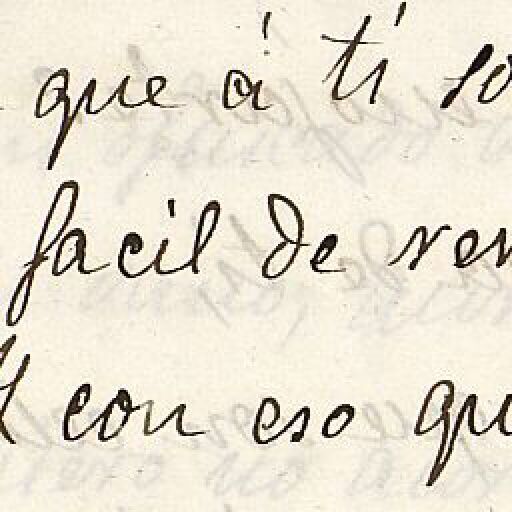 que á tí so
facil de ren
con eso qu